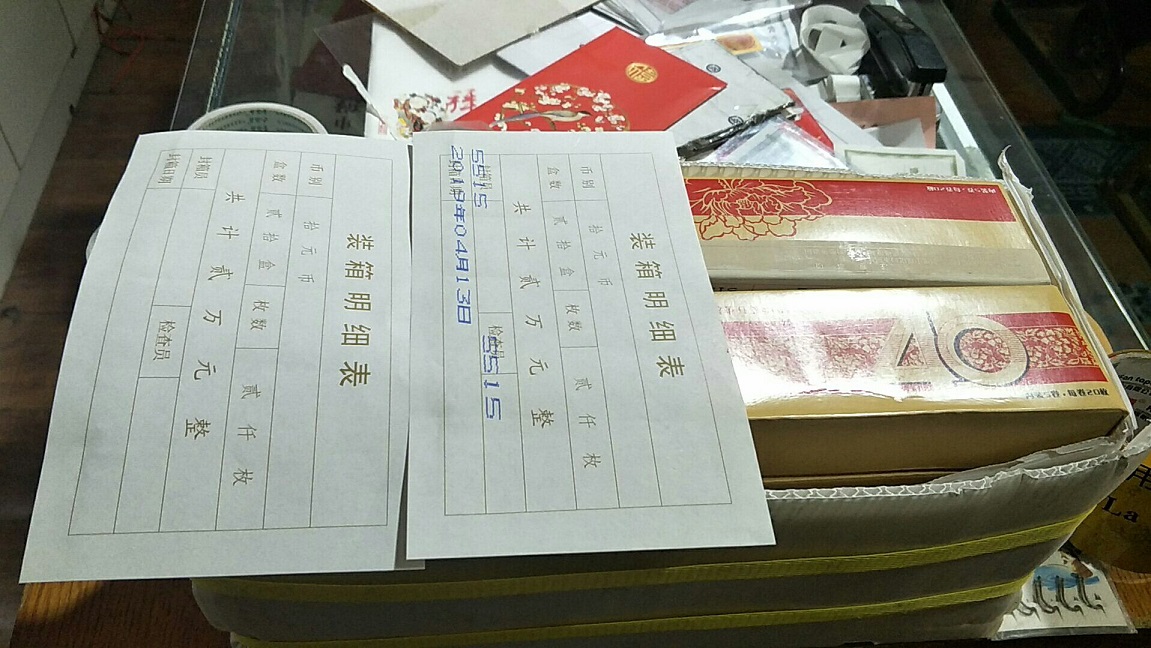 装箱明细表
币别 拾元币
盒数 贰拾盒 枚数 贰仟枚
共计贰万元整
封箱员 检查员
封箱日期
装箱明细表
币别 拾元币
盒数 贰拾盒 枚数 贰仟枚
共计贰万元整
5515 5515
2018年04月13日
福
祥
La